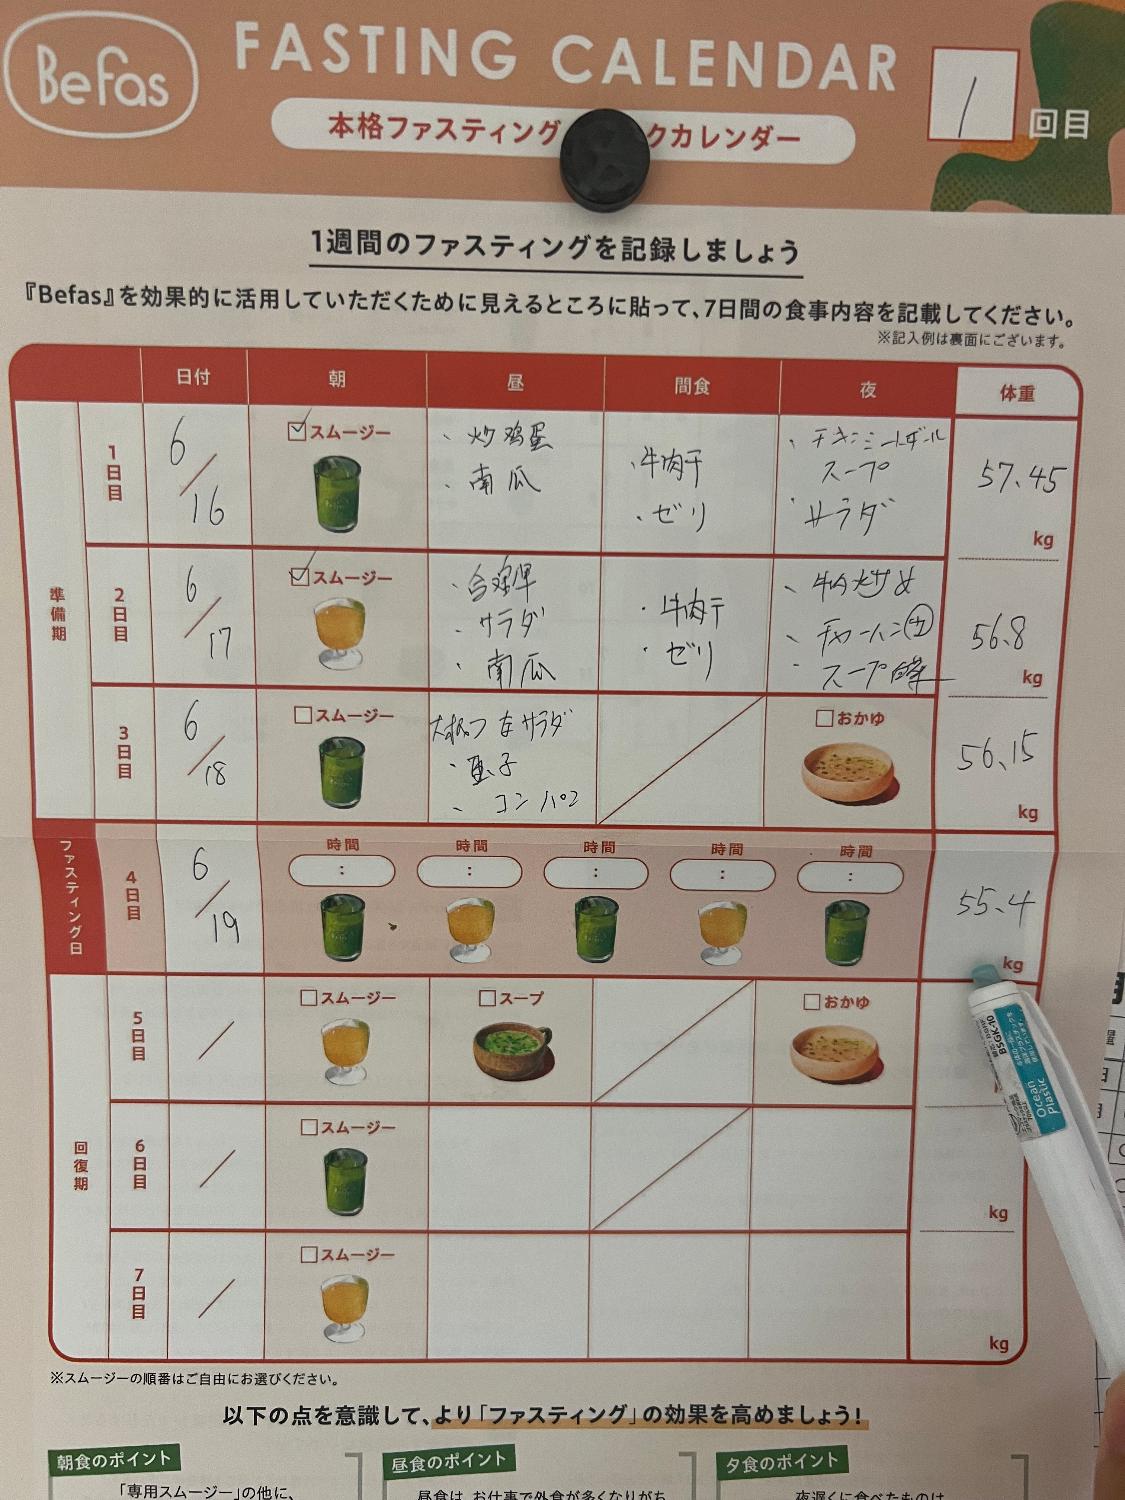 Befas
FASTING CALENDAR
本格ファスティング
クカレンダー
1
回目
1週間のファスティングを記録しましょう
『Befas』を効果的に活用していただくために見えるところに貼って、7日間の食事内容を記載してください。
※記入例は裏面にございます。
日付 朝 昼 間食 夜 体重
準備期
1日目
6/16
スムージー
・炒鸡蛋
・南瓜
・牛肉干
・ゼリ
スープ
サラダ
57.45
kg
2日目
6/17
スムージー
・サラダ
・南瓜
・牛肉干
・ゼリ
56.8
kg
3日目
6/18
スムージー
サラダ
おかゆ
56.15
kg
ファスティング日
4日目
6/19
時間 時間 時間 時間 時間
: : : : :
55.4
kg
回復期
5日目
/
スムージー
スープ
おかゆ
6日目
/
スムージー
kg
7日目
/
スムージー
kg
※スムージーの順番はご自由にお選びください。
以下の点を意識して、より「ファスティング」の効果を高めましょう!
朝食のポイント
昼食のポイント
夕食のポイント
「専用スムージー」の他に、
昼食は、お仕事で外食が多くなりがち
夜遅くに食べたものは
BSGK-10
Ocean Plastic